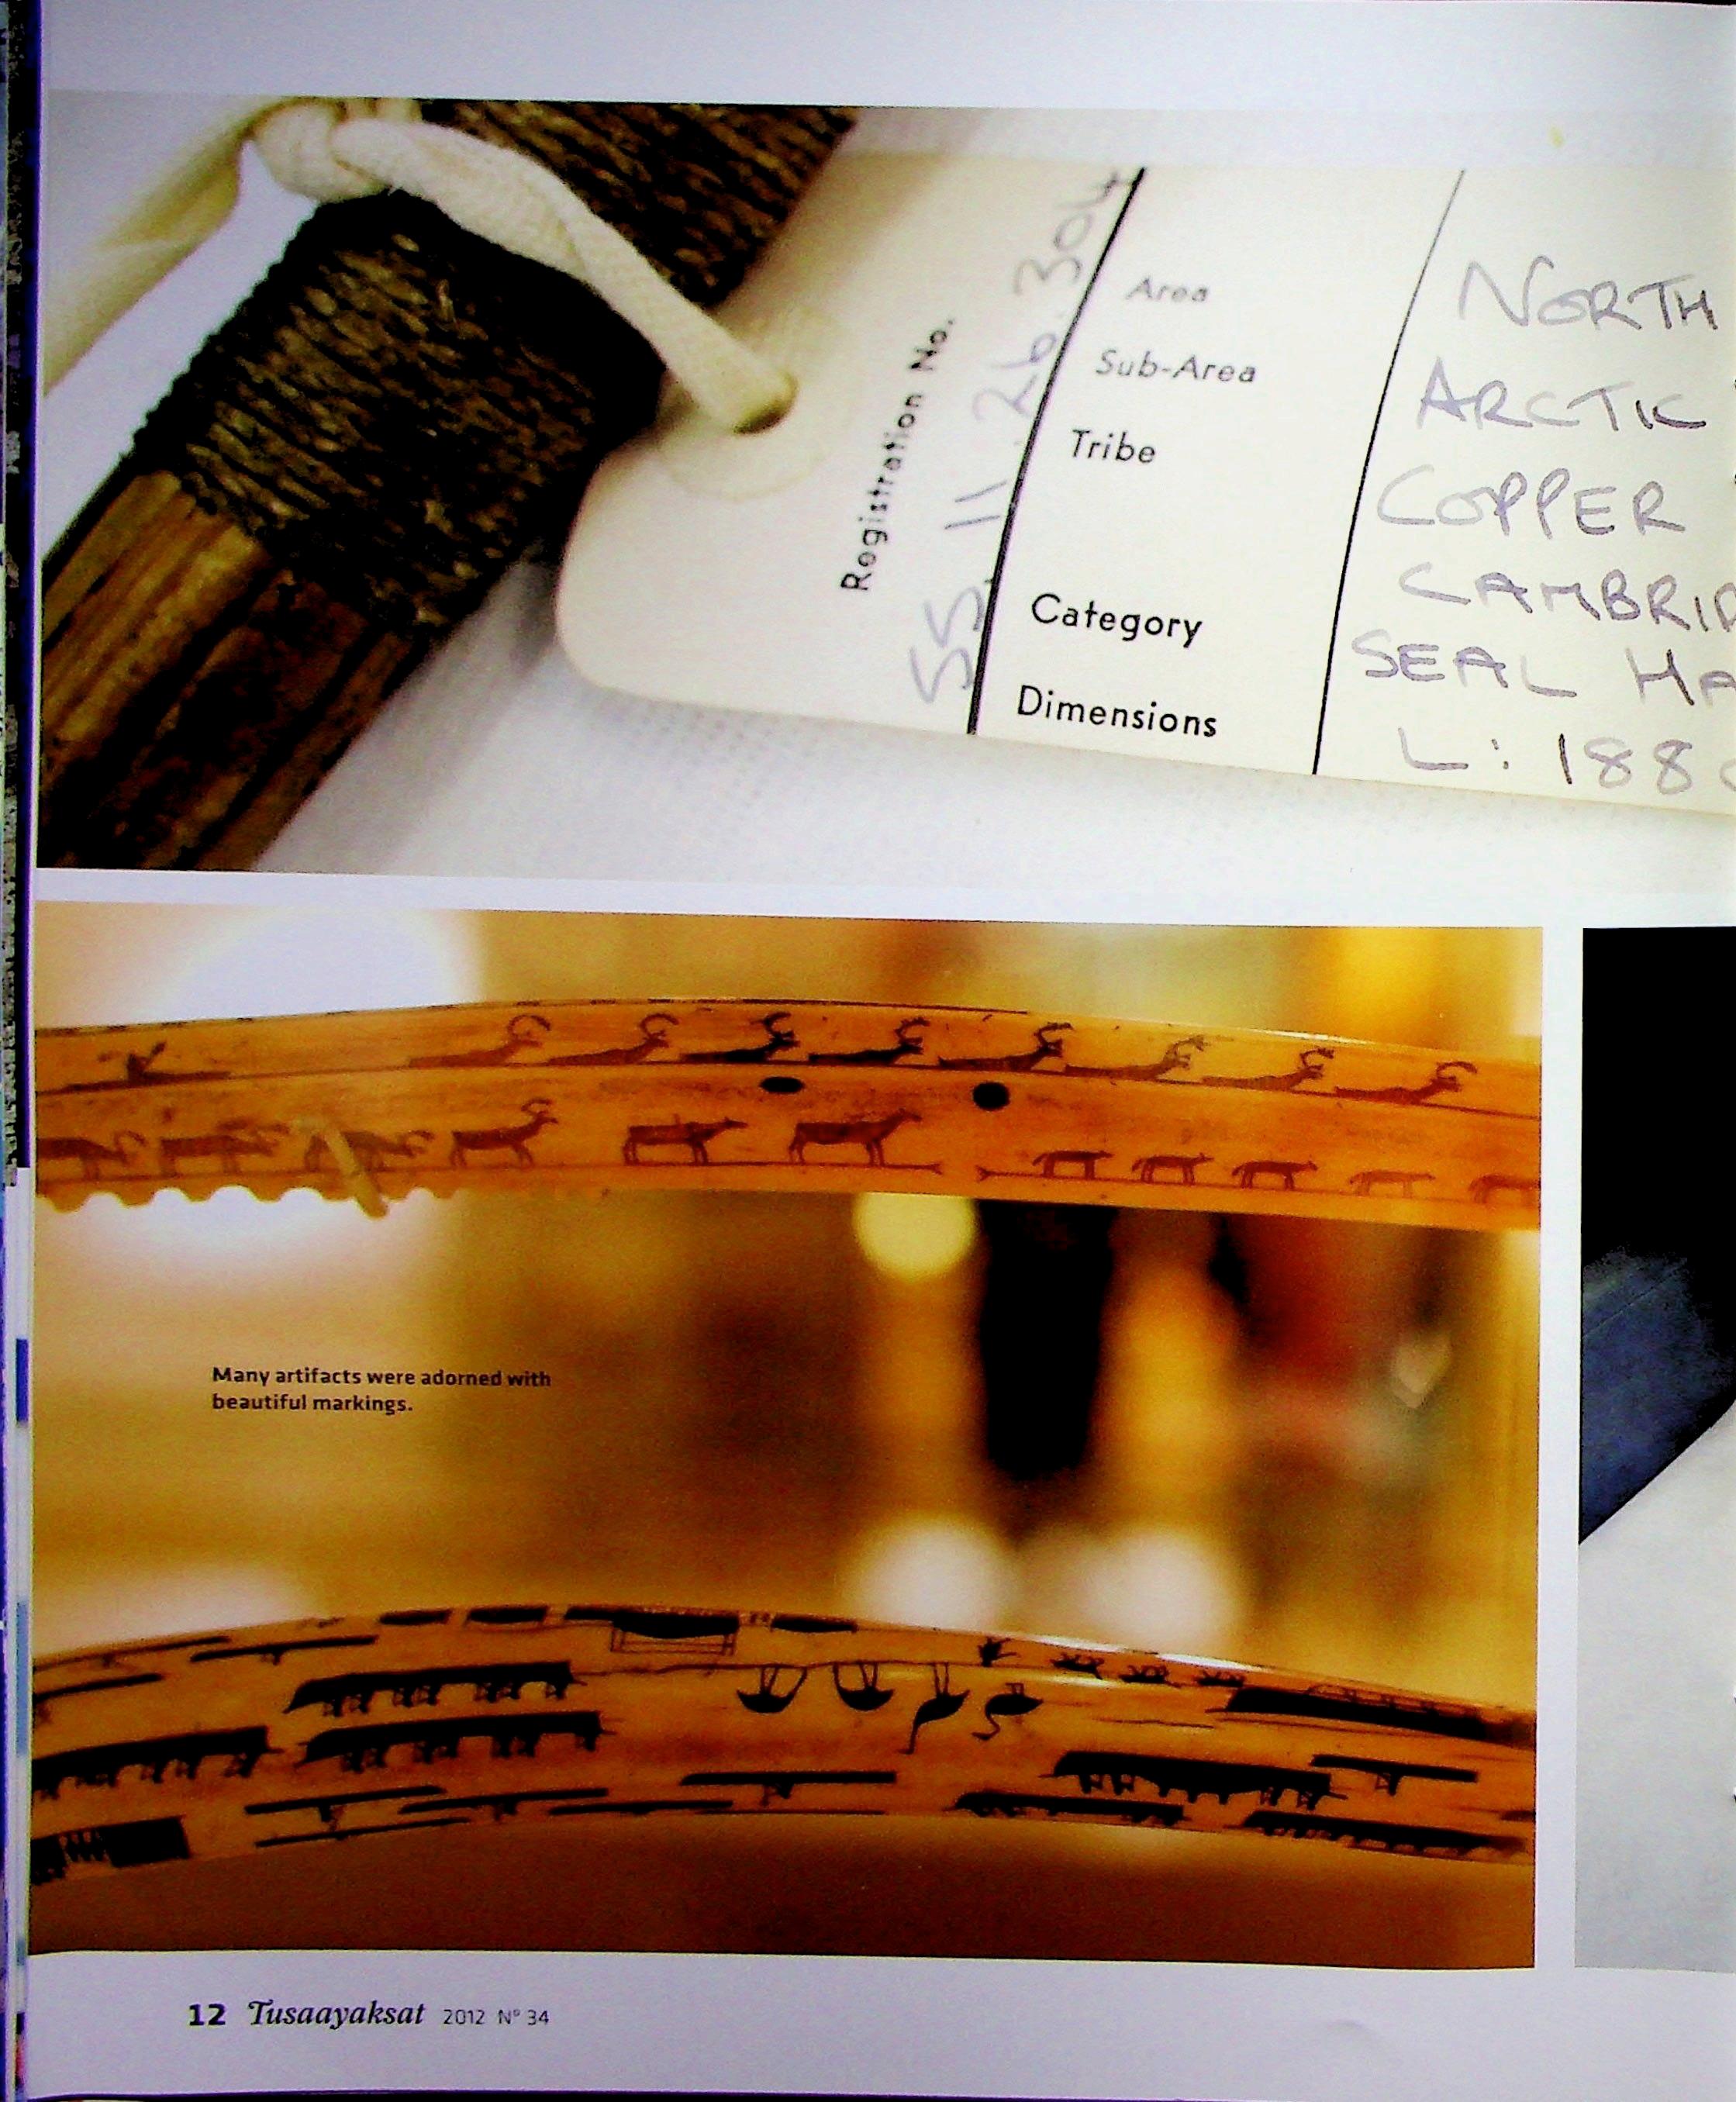 Registration No.
55.11.26.304
Area NORTH
Sub-Area ARCTIC
Tribe COPPER
CAMBRID
Category SEAL HA
Dimensions L: 188
Many artifacts were adorned with
beautiful markings.
12 Tusaayaksat 2012 Nº 34